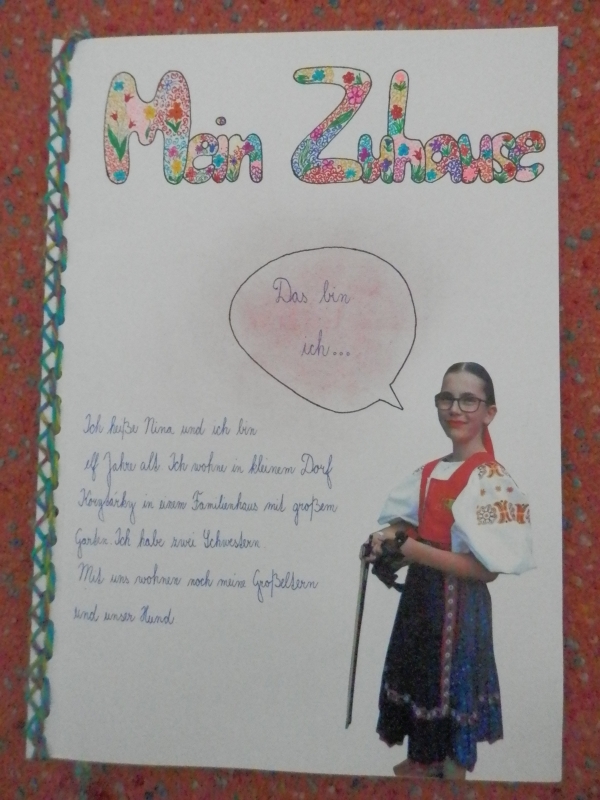 Mein Zuhause
Das bin
ich...
Ich heiße Nina und ich bin
elf Jahre alt. Ich wohne in kleinem Dorf
in einem Familienhaus mit großem
Garten. Ich habe zwei Schwestern
Mit uns wohnen noch meine Großeltern
und unser Hund